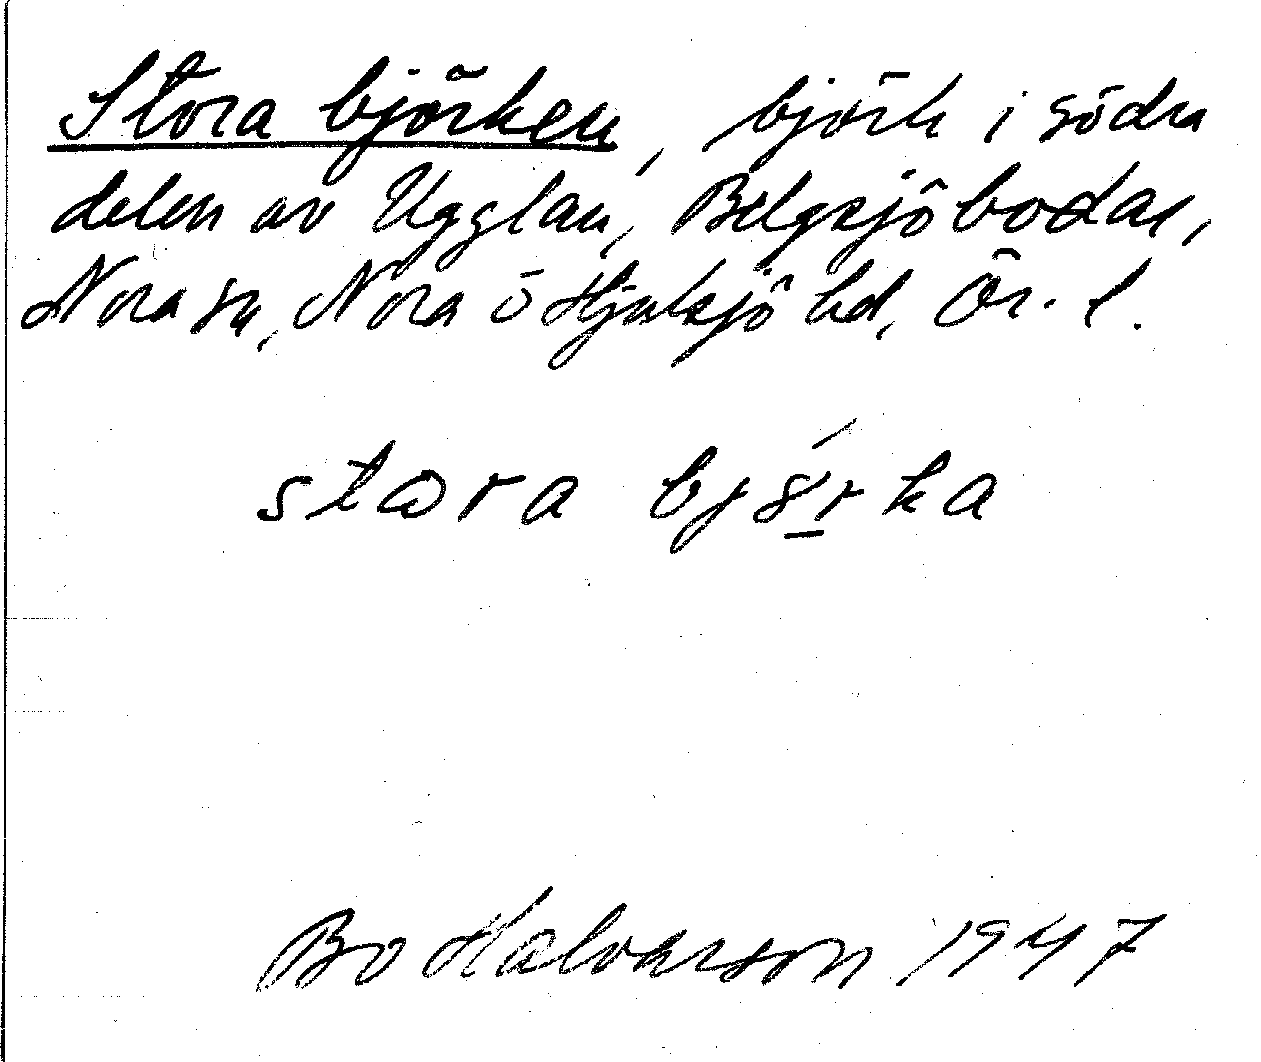 Stora björken, björk i södra
delen av Ugglan, Belgsjöbodar,
Nora sn, Nora ö Hjulsjö bd, Ör. l.
stora bjørka
Bo Halvarson 1947